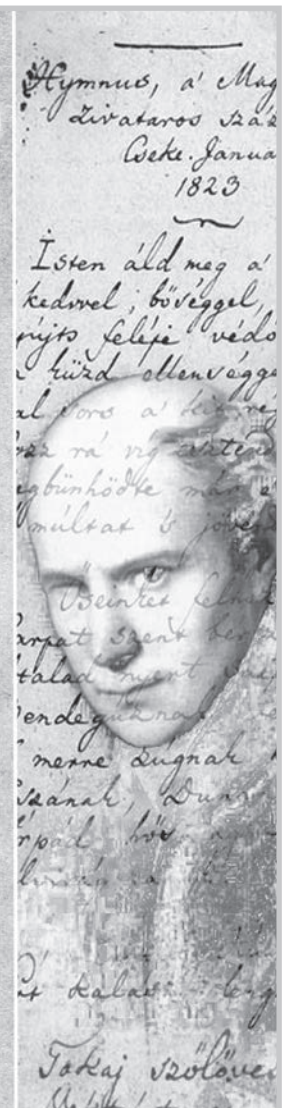 Hymnus, a' Mag
Zivataros száz
Cseke. Janua
1823
Isten áld meg a'
kedvvel, bőséggel,
nyújts feléje védő
a küzd ellenségge
al sors a' kit rég
ozz rá víg esztend
egbűnhődte már e'
múltat 's jöven
Őseinket felho
árpát szent bércz
talad nyert
Bendegúznak
merre zúgnak
szának, Dun
rpád hős
lvirág
kalás leng
Tokaj szőlőve